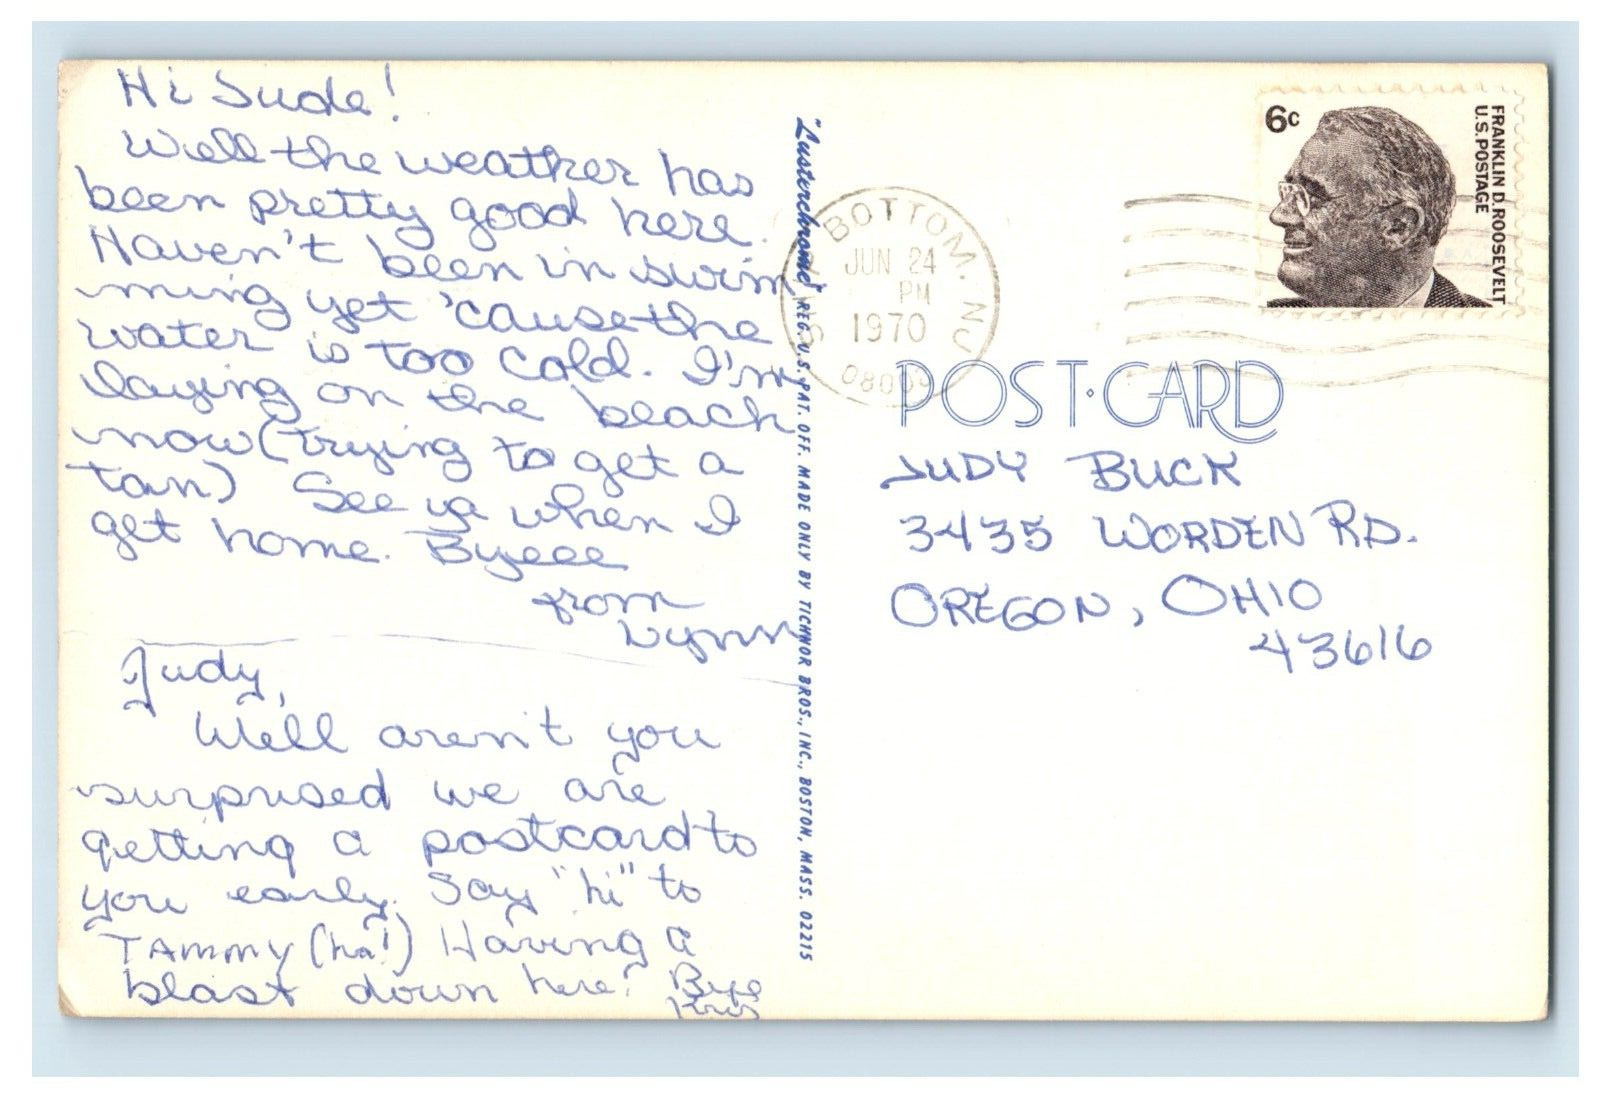 Hi Jude!
Well the weather has
been pretty good here.
Haven't been in swim
ming yet 'cause the
water is too cold. I'm
laying on the beach
now (trying to get a
tan) See ya when I
get home. Byeee
from
Lynn
Judy,
Well aren't you
surprised we are
getting a postcard to
you early. Say "hi" to
TAMMY (ha!) Having a
blast down here! Bye
Kris
"Lusterchrome" REG. U.S. PAT. OFF. MADE ONLY BY TICHNOR BROS., INC., BOSTON, MASS. 02215
BOTTOM, NJ
JUN 24
PM
1970
6c
FRANKLIN D. ROOSEVELT
U.S. POSTAGE
POST CARD
JUDY BUCK
3435 WORDEN RD.
OREGON, OHIO
43616